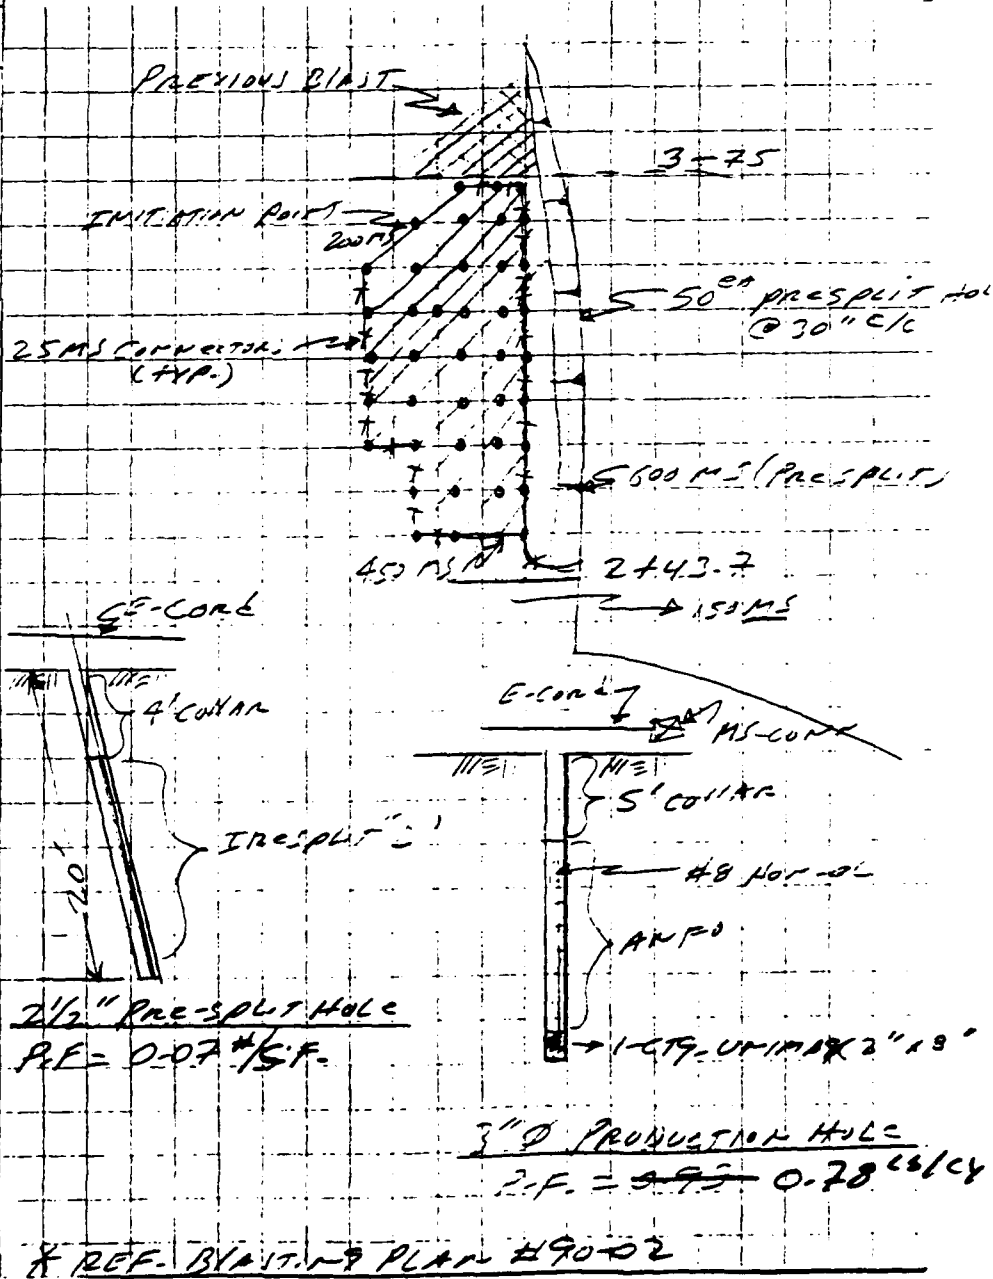 PREVIOUS BLAST
3-75
INITIATION POINT
200MS
50 EA PRESPLIT HOL
@ 30" C/C
25 MS CONNECTORS
(TYP.)
600 MS (PRESPLIT)
450 MS
2+43.7
150 MS
E-CORD
4' COLLAR
20'
2 1/2" PRE-SPLIT HOLE
P.F. = 0.07 #/S.F.
E-CORD
MS-CONN
5' COLLAR
#8
ANFO
1-CTG. UNIMAX 2" x 8"
3" Ø PRODUCTION HOLE
P.F. = 0.78 LB/CY
* REF. BLASTING PLAN #90-02